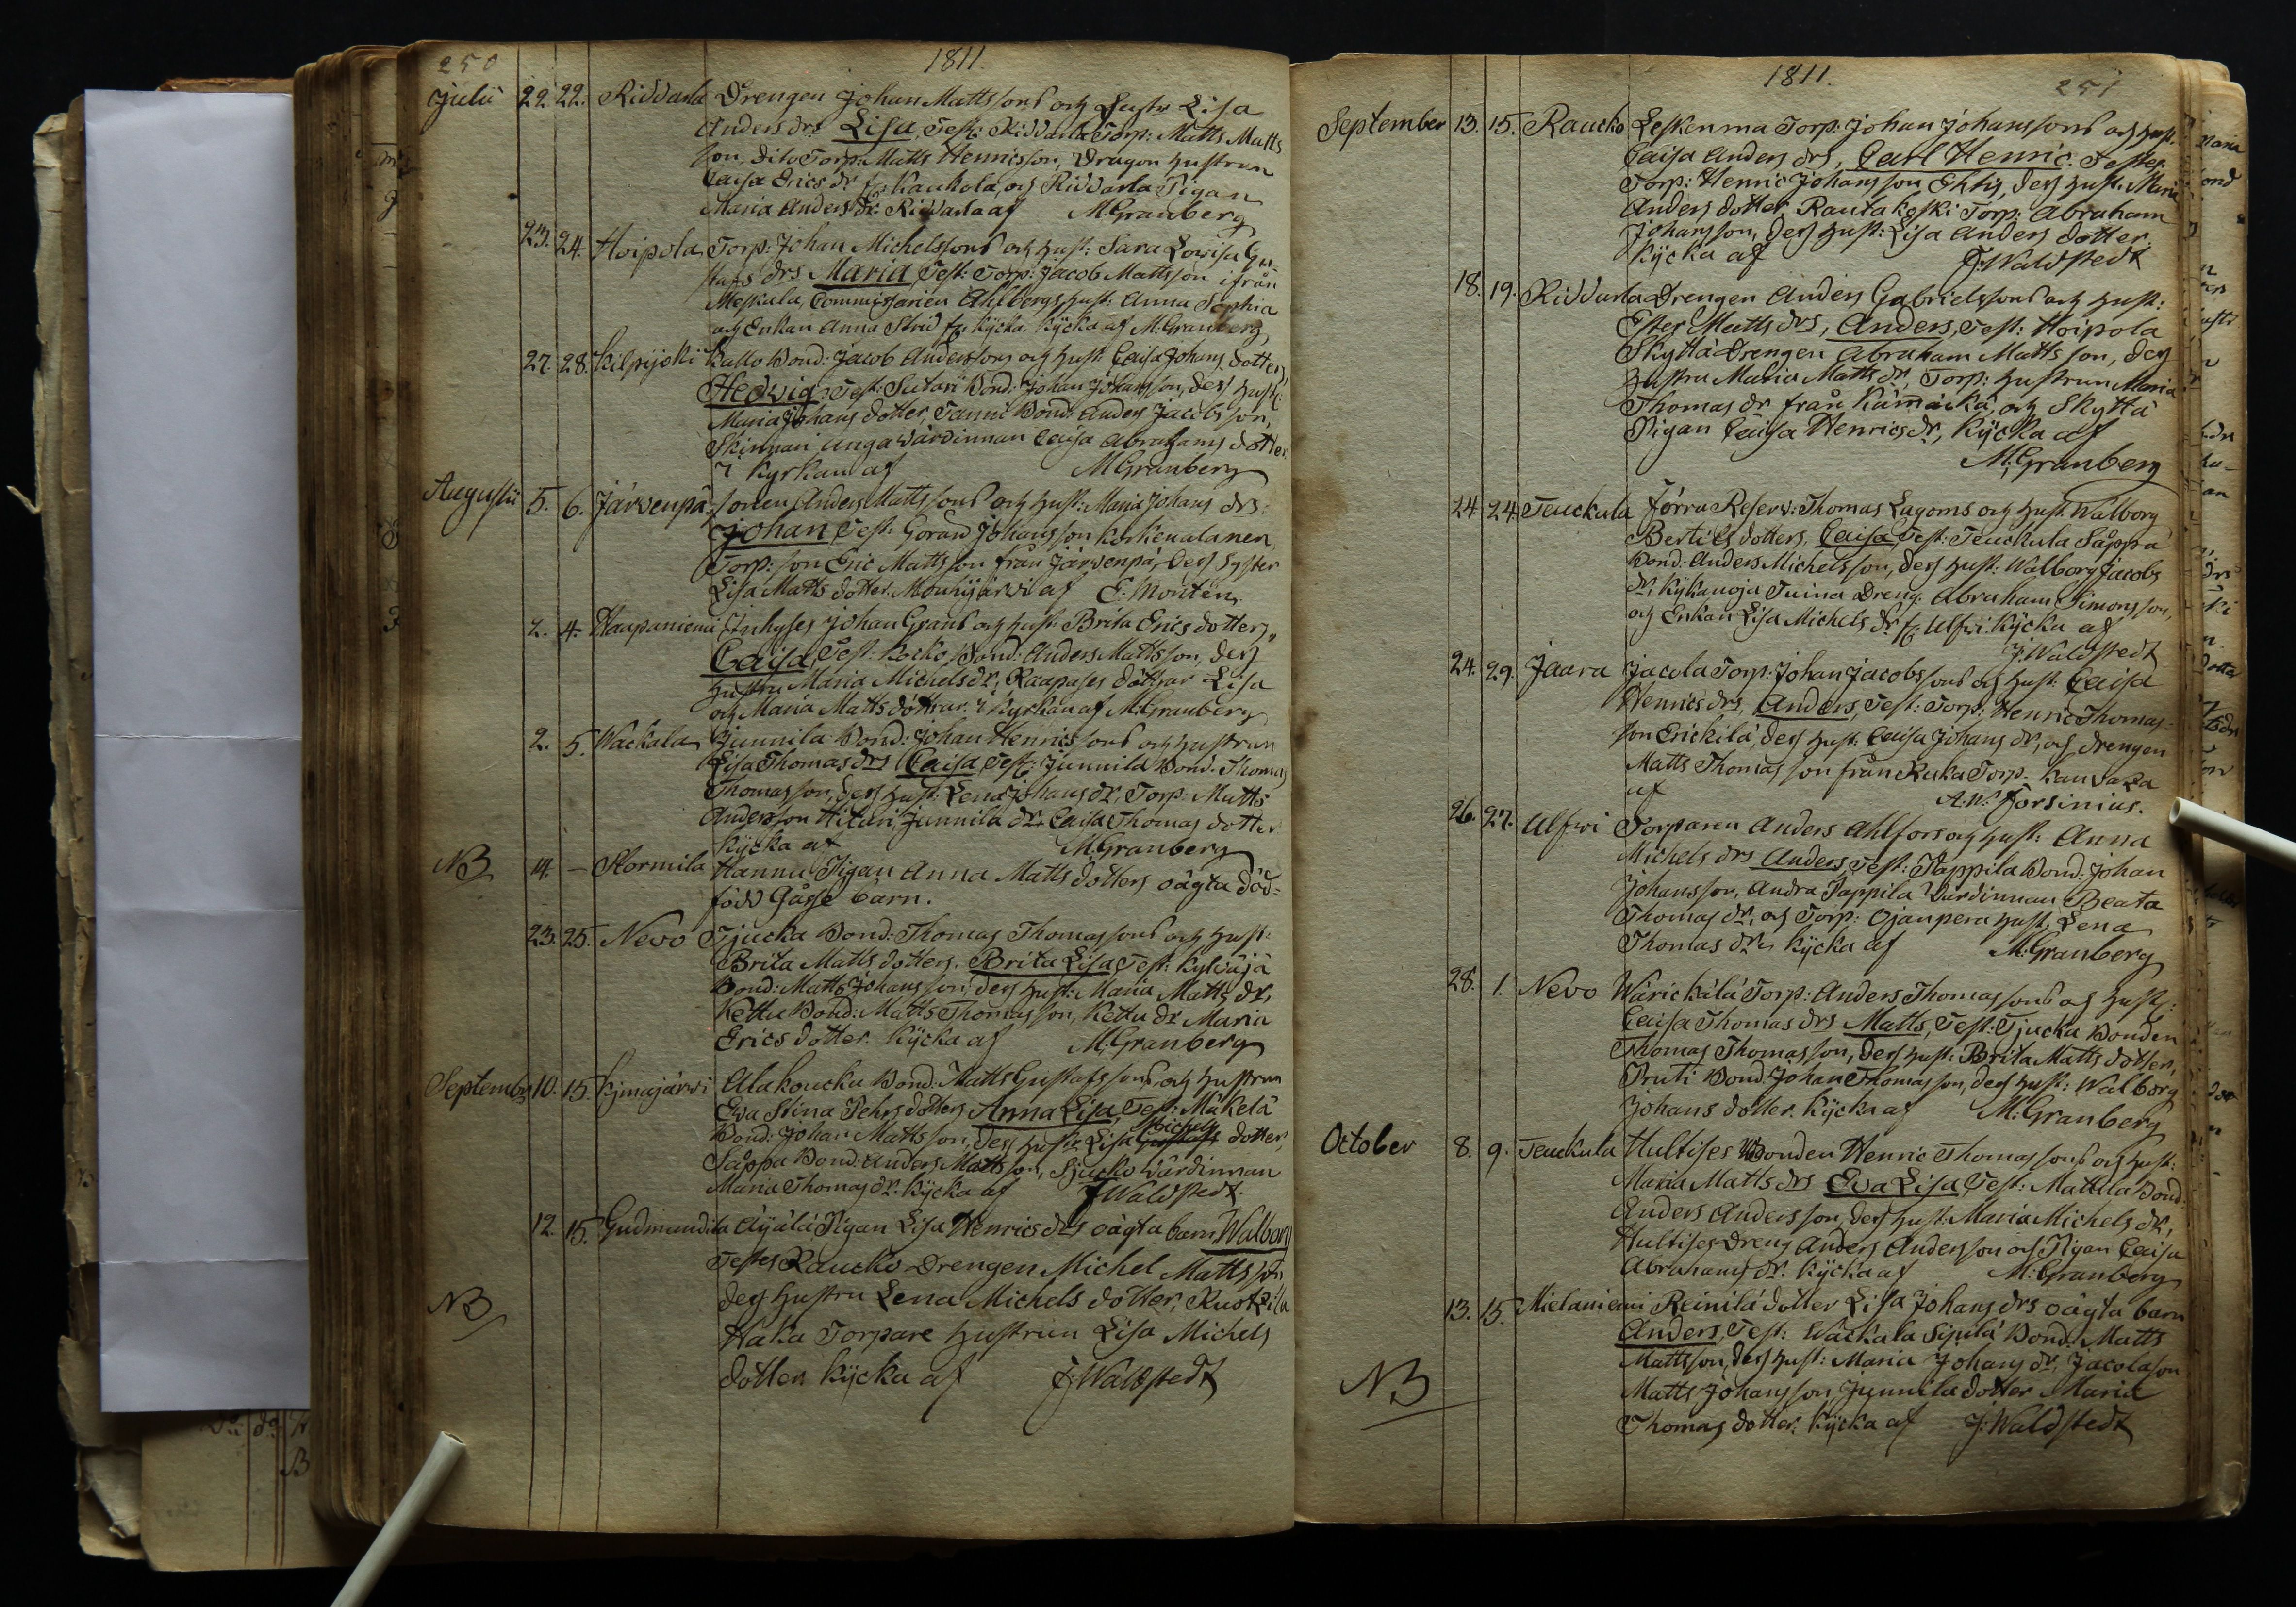 250
1811.
Julii 22. 22. Riddarla Drengen Johan Mattssons och Hustr Lisa
Anders drs Lisa, Test: Riddarla Torp: Matts Matts
son, dito Torp: Matts Henricsson, Dragon hustrun
Caisa Erics dr fr. Kaukola, och Riddarla Pigan
Maria Anders dr. Riddarla af M. Granberg
23. 24. Hoipola Torp: Johan Michelssons och hust: Sara Lovisa Gu-
stafs drs Maria, Test: Torp: Jacob Mattsson ifrån
Meskala, Commissarien Ahlbergs hust: Anna Sophia
och Enkan Anna Strid fr. Kÿcka. Kÿcka af M. Granberg,
27. 28. Kilpijoki Kallo Bond: Jacob Anderssons och hust: Caisa Johans dotters,
Hedvig, Test: Sutari Bond: Johan Johansson, dess hust:
Maria Johans dotter, Tanni Bond: Anders Jacobsson,
Skinnari unga Värdinnan Caisa Abrahams dotter.
i Kyrkan af M. Granberg
Augusti 5. 6. Järvenpä, sonen Anders Mattssons och hust: Maria Johans drs:
Johan, Test: Göran Johansson Korkenalanen,
Torp: son Eric Mattsson från Järvenpä, dess syster
Lisa Matts dotter. Mouhijärvi af E. Montén.
2. 4. Haapaniemi Inhyses Johan Grans och hust: Brita Erics dotters,
Caisa, Test: Kocko Bond: Anders Mattsson, dess
hustru Maria Michels dr, Raapases döttrar Lisa
och Maria Matts döttrar. i Kyrkan af M. Granberg
2. 5. Wackala, Junnila Bond: Johan Henrics sons och hustrun
Lisa Thomas drs Caisa, Test: Junnila Bond: Thomas
Thomasson, dess hust: Lena Johans dr, Torp: Matts
Andersson Hituri, Junnila dr Caisa Thomas dotter
Kÿcka af M. Granberg
NB 14. – Stormila Hannu Pigan Anna Matts dotters oägta död-
född Gåsse barn.
23. 25. Nevo Tjucka Bond: Thomas Thomassons och hust:
Brita Matts dotters. Brita Lisa, Test: Kylväjä
Bond: Matts Johansson, dess hust: Maria Matts dr,
Kettu Bond: Matts Thomasson, Kettu dr Maria
Erics dotter. Kÿcka af M. Granberg
September 10. 15. Kjmajärvi Alakoucku Bond: Matts Gustafssons och hustrun
Eva Stina Pehrs dotters Anna Lisa, Test: Mäkelä
Michels
Bond: Johan Mattsson, dess hustr Lisa Gustafs dotter,
Såppa Bond: Anders Mattsson, Sjucko Värdinnan
Maria Thomas dr. Kÿcka af J. Waldstedt.
12. 15. Gudmundila Äÿälä Pigan Lisa Henrics drs oägta barn Walborg
Testes Raucko Drengen Michel Mattsson,
dess hustru Lena Michels dotter, Ruotzila
NB
Haka Torpare hustrun Lisa Michels
dotter. Kÿcka af J. Waldstedt
1811.
251
September 13. 15. Raucko Leskenma Torp: Johan Johanssons och hust.
Caisa Anders drs, Carl Henric. Testes.
Torp: Henric Johansson Ehtis, dess hust. Maria
Anders dotter, Rautakoski Torp: Abraham
Johansson, dess hust: Lisa Anders dotter.
Kÿcka af J. Waldstedt
18. 19. Riddarla Drengen Anders Gabrielssons och hust:
Ester Matts drs, Anders, Test: Hoipola
Skyttä Drengen Abraham Mattsson, dess
hustru Maria Matts dr, Torp: hustrun Maria
Thomas dr från Kämäkä, och Skyttä
Pigan Caisa Henrics dr, Kÿcka af
M. Granberg
24. 24. Teuckula Förra Reserv: Thomas Lagoms och hust. Walborg
Bertils dotters, Caisa, Test: Teuckula Såppa
Bond: Anders Michelsson, dess hust: Walborg Jacobs
dr, Kykänoja Tuina Dreng: Abraham Simonsson,
och Enkan Lisa Michels dr fr Ulfvi. Kÿcka af
J. Waldstedt
24. 29. Jaara Jacola Torp: Johan Jacobssons och hust: Caisa
Henrics drs, Anders, Test: Torp: Henric Thomas-
son Erickilä, dess hust: Caisa Johans dr, och drengen
Matts Thomasson från Ruka Torp. Kauvaza
af A.W. Forsinius.
26. 27. Ulfvi Torparen Anders Ahlfors och hust: Anna
Michels drs Anders, Test: Pappila Bond: Johan
Johansson, Andra Pappila Värdinnan Beata
Thomas dr, och Torp: Ojanpera hust: Lena
Thomas dr, Kÿcka af M. Granberg
28. 1. Nevo Wärickälä Torp: Anders Thomassons och hust:
Caisa Thomas drs Matts, Test: Tjucka Bonden
Thomas Thomasson, dess hust: Brita Matts dotter,
Pruti Bond: Johan Thomasson, dess hust: Walborg
Johans dotter. Kÿcka af M. Granberg
October 8. 9. Teuckula Hultises Bonden Henric Thomassons och hust:
Maria Matts drs Eva Lisa, Test: Mattila Bond:
Anders Andersson, dess hust: Maria Michels dr,
Hultises Dreng Anders Andersson och Pigan Caisa
Abrahams dr. Kÿcka af M. Granberg
13. 15. Mielaniemi Reinilä dotter Lisa Johans drs oägta barn
Anders, Test: Wackala Sipilä Bond: Matts
Mattsson, dess hust: Maria Johans dr, Jacola son
NB
Matts Johansson, Junnila dotter Maria
Thomas dotter. Kÿcka af J. Waldstedt